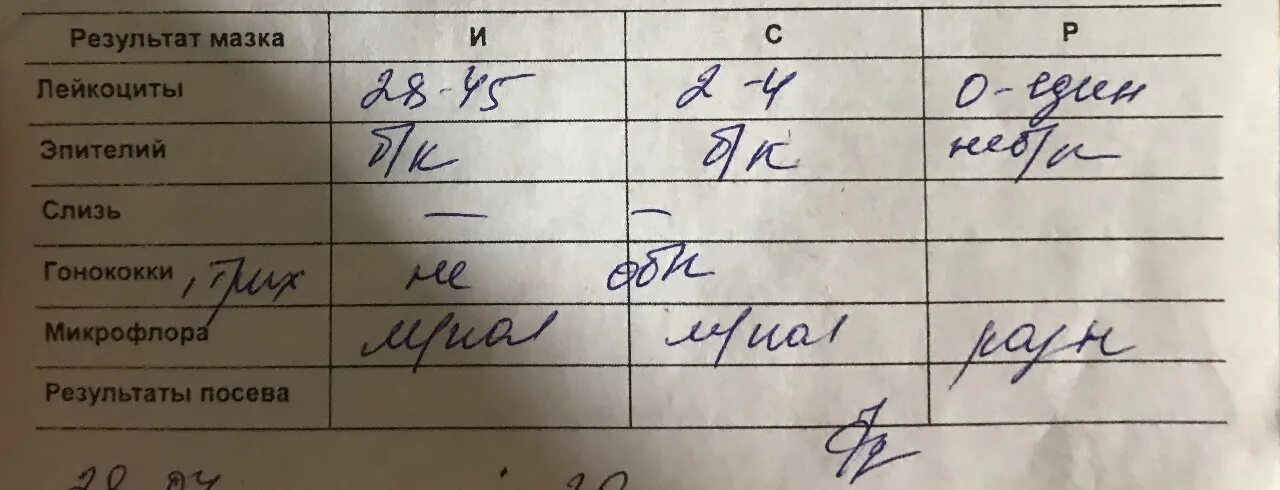 Результат мазка И С Р
Лейкоциты 28-45 2-4 0-един
Эпителий б/к б/к неб/к
Слизь — —
Гонококки, трих не обн
Микрофлора м/пал м/пал разн
Результаты посева